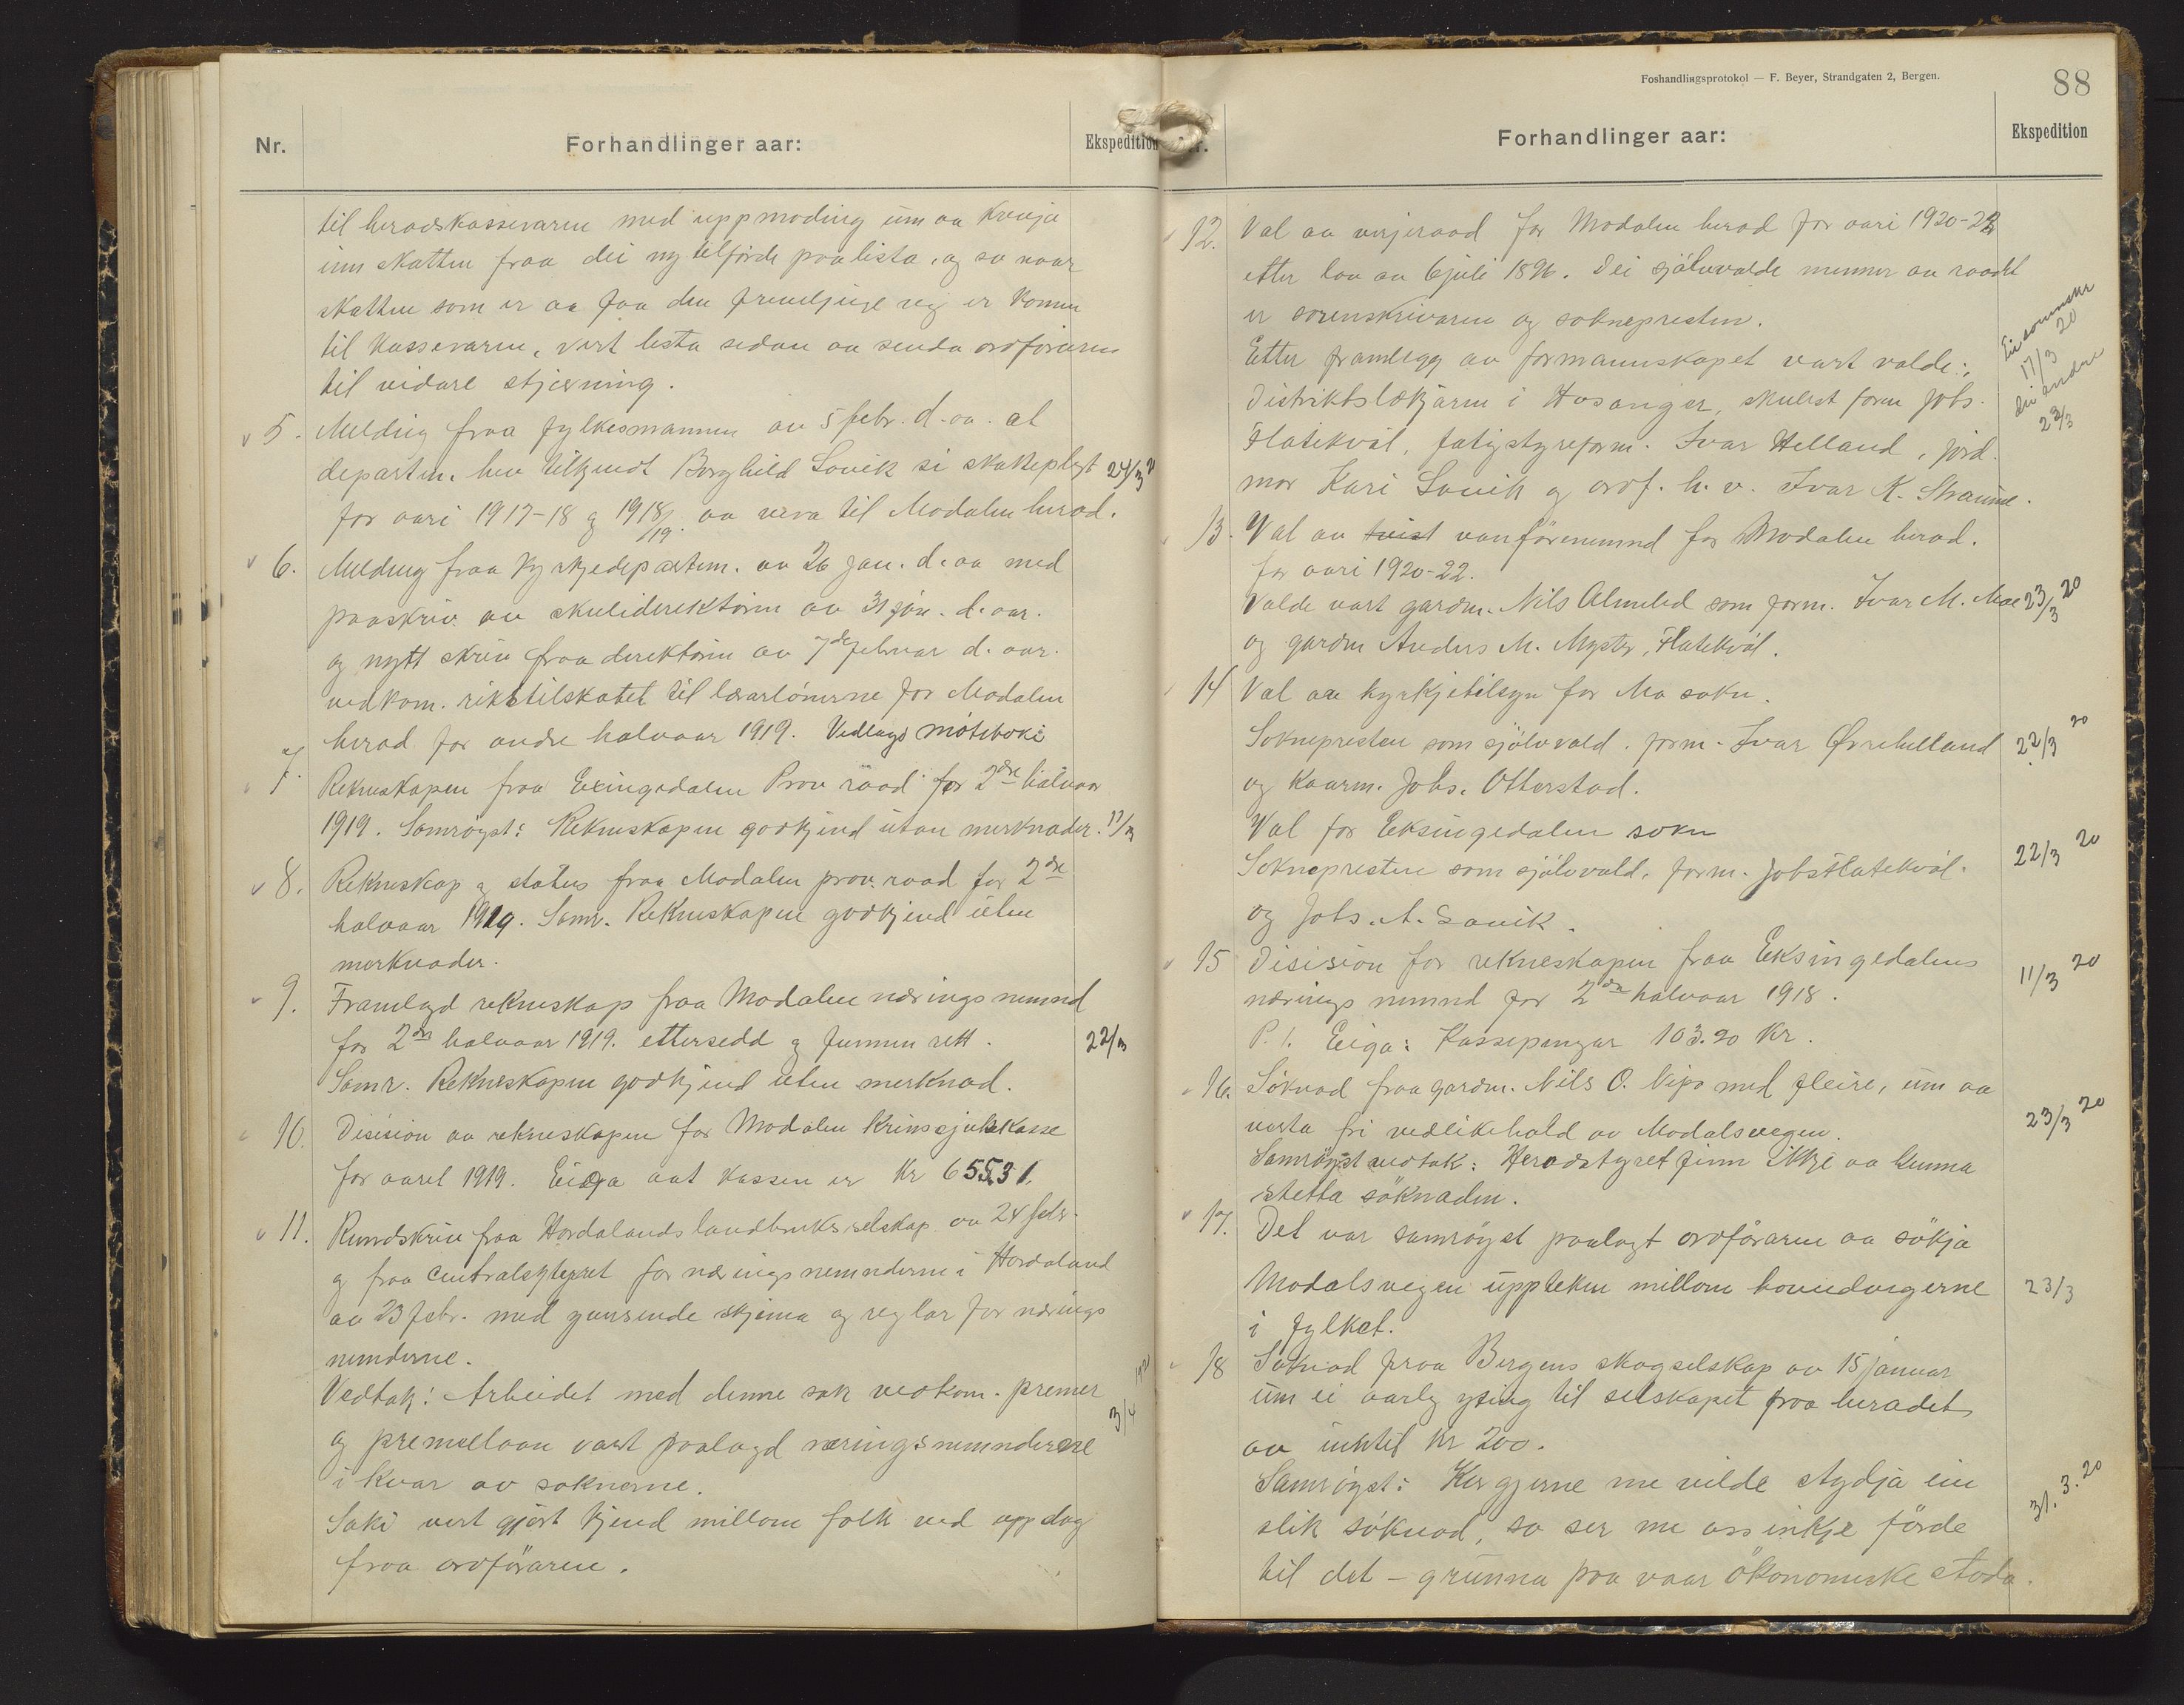 Nr.
Forhandlinger aar:
Ekspedition
til heradskassevaren med uppmoding um aa krevja
inn skatten fraa dei ny tilførde paa lista, og so naar
skatten som er aa faa den fremljuge veg er komen
til kassevaren, vert lista sedan aa senda ordføraren
til vidare stjerning.
5. Melding fraa fylkesmannen av 5 febr. d. aa. at
departm. hev tilkjendt Borghild Lavik si skatteplegt 24/3
for aari 1917-18 og 1918/19 aa vera til Modalen herad.
6. Melding fraa kyrkjedepartem. av 26 jan. d. aa med
paaskriv av skuledirektøren av 31 jan. d. aar.
og nytt skriv fraa direktøren av 7de februar d. aar.
vedkom. rikstilskotet til lærarlønerne for Modalen
herad for andre halvaar 1919. Vedlagd møteboki
7. Rekneskapen fraa Exingedalen Prov. raad for 2dre halvaar
1919. Samrøyst: Rekneskapen godkjend utan merknader. 17/3
8. Rekneskap og status fraa Modalen prov. raad for 2dre
halvaar 1919. Samr. Rekneskapen godkjend uten
merknader.
9. Framlagd rekneskap fraa Modalen næringsnemnd
for 2dre halvaar 1919. ettersedd og funnen rett. 22/3
Samr. Rekneskapen godkjend uten merknad.
10. Disision av rekneskapen for Modalen Krinssjukekasse
for aaret 1919. Eiga aat kassen er Kr 655.31.
11. Rundskriv fraa Hordalands landbruksselskap av 24 febr.
og fraa Centralstyret for næringsnemnderne i Hordaland
av 23 febr. med germsende skjema og reglar for nærings
nemnderne.
Vedtak: Arbeidet med denne sak vedkom. premer
og premielaan vart paalagd næringsnemnderne 3/4
i kvar av soknerne.
Saki vert gjort kjend millom folk ved uppslag
fraa ordføraren.
Foshandlingsprotokol — F. Beyer, Strandgaten 2, Bergen.
88
Forhandlinger aar:
Ekspedition
12. Val av verjeraad for Modalen herad for aari 1920-22
etter lov av 6 juli 1896. Dei sjølvvalde menner av raadet
er sorenskrivaren og soknepresten.
Etter framlegg av formannskapet vart valde:
Distriktslækjaren i Hosanger, skulest. form. Johs.
Flatekvål, fatigstyreform. Ivar Helland, jord-
mor Kari Lavik og ordf. h. v. Ivar K. Straume.
17/3 20
dei andre
23/3
13. Val av tvist vanførenemnd for Modalen herad.
for aari 1920-22.
Valde vart gardm. Nils Almelid som form. Ivar M. Moe 23/3 20
og gardm Anders M. Myster, Flatekvål.
14 Val av kyrkjetilsyn for Mo sokn.
Soknepresten som sjølvvald. form. Ivar Øvrehelland 22/3 20
og kaarm. Johs. Otterstad.
Val for Eksingedalen sokn
Soknepresten som sjølvvald, form. Johs Flatekvål. 22/3 20
og Johs. A. Lavik.
15 Disision for rekneskapen fraa Eksingedalens 11/3 20
nærings nemnd for 2dre halvaar 1918.
P. 1. Eiga: Kassepengar 103.20 Kr.
16. Søknad fraa gardm. Nils O. Nipo med fleire, um aa
verta fri vedlikehald av Modalsvegen. 23/3 20
Samrøystvedtak: Heradstyret finn ikkje aa kunna
støtta søknaden.
17. Det var samrøyst paalagt ordføraren aa søkja
Modalsvegen uppteken millom hovudvegerne 23/3
i fylket.
18 Søknad fraa Bergens skogselskap av 15 januar
um ei aarleg yting til selskapet fraa heradet
av inntil kr 200.
Samrøyst: Kor gjerne me vilde stydja ein
slik søknad, so ser me oss inkje førde 31. 3. 20
til det – grunna paa vaar økonomiske stoda.